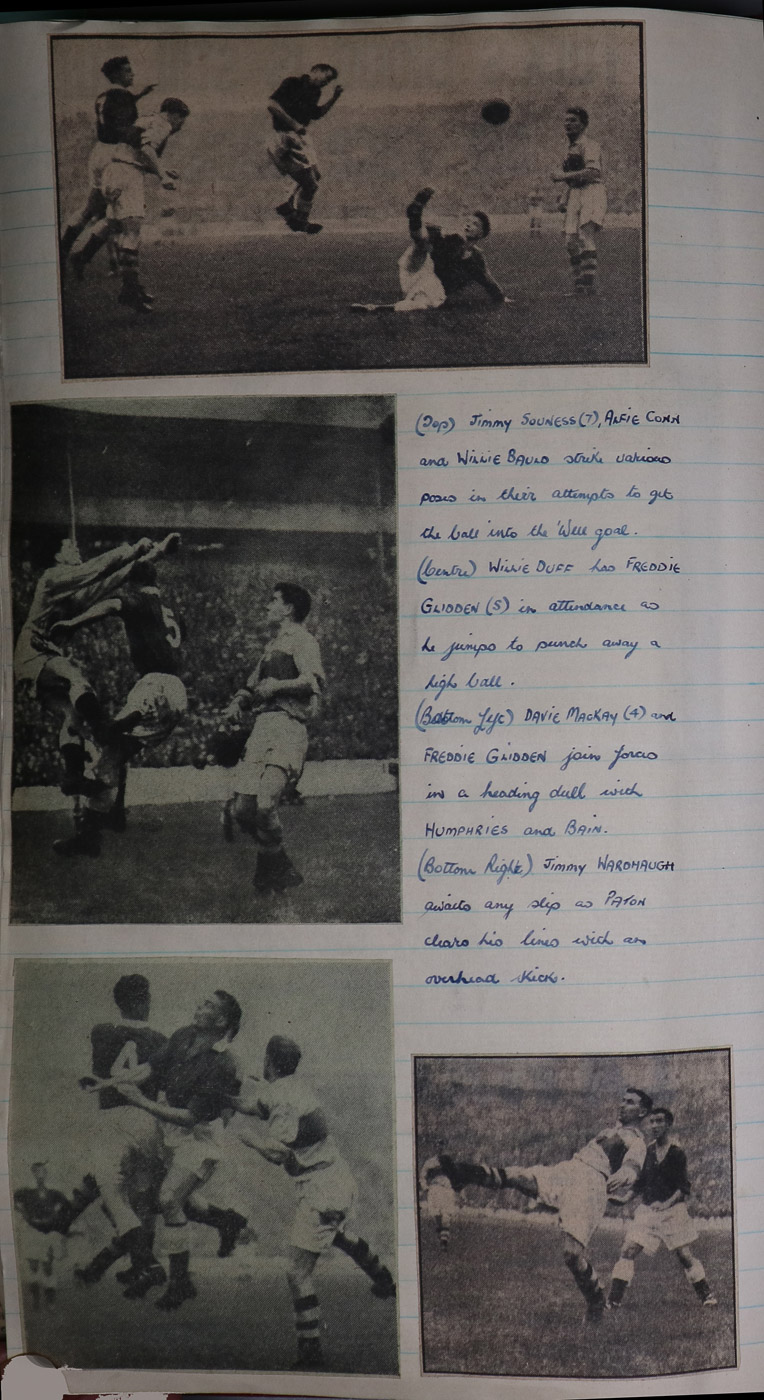 (Top) Jimmy SOUNESS (7), ALFIE CONN
and WILLIE BAULD strike various
poses in their attempts to get
the ball into the 'Well goal.
(Centre) WILLIE DUFF has FREDDIE
GLIDDEN (5) in attendance as
he jumps to punch away a
high ball.
(Bottom Left) DAVIE MACKAY (4) and
FREDDIE GLIDDEN join forces
in a heading duel with
HUMPHRIES and BAIN.
(Bottom Right) Jimmy WARDHAUGH
awaits any slip as PATON
clears his lines with an
overhead kick.
5
4